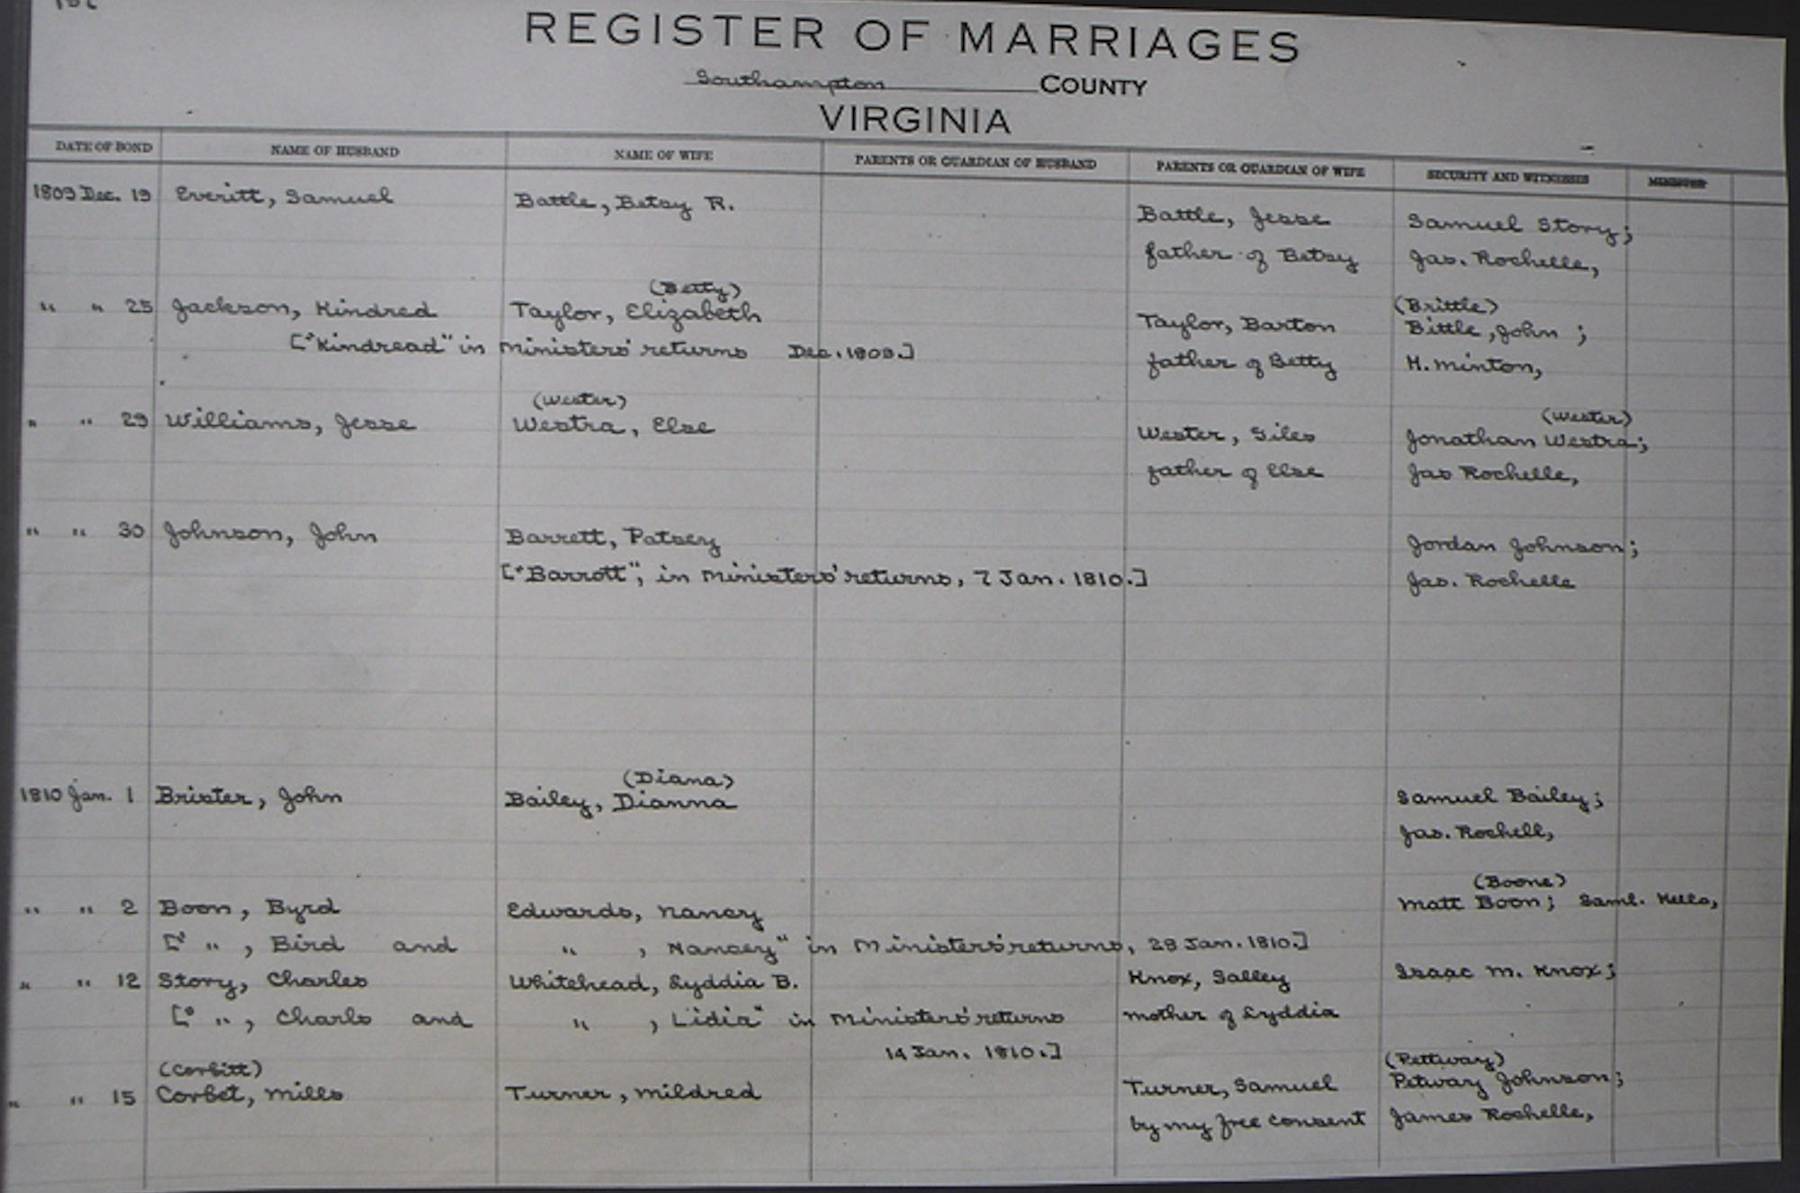 REGISTER OF MARRIAGES
Southampton COUNTY
VIRGINIA
DATE OF BOND NAME OF HUSBAND NAME OF WIFE PARENTS OR GUARDIAN OF HUSBAND PARENTS OR GUARDIAN OF WIFE SECURITY AND WITNESSES MINISTER
1809 Dec. 19 Everitt, Samuel Battle, Betsy R. Battle, Jesse Samuel Story;
father of Betsy Jas. Rochelle,
(Betty) (Brittle)
" " 25 Jackson, Kindred Taylor, Elizabeth Taylor, Barton Bittle, John ;
["Kindread" in Ministers' returns Dec. 1809.] father of Betty H. Minton,
(Wester) (Wester)
" " 29 Williams, Jesse Westra, Else Wester, Giles Jonathan Westra;
father of Else Jas Rochelle,
" " 30 Johnson, John Barrett, Patsey Jordan Johnson;
["Barrott", in Ministers' returns, 7 Jan. 1810.] Jas. Rochelle
(Diana)
1810 Jan. 1 Brister, John Bailey, Dianna Samuel Bailey;
Jas. Rochell,
(Boone)
" " 2 Boon, Byrd Edwards, Nancy Matt Boon; Saml. Kello,
[" " , Bird and " , Nancey" in Ministers' returns, 28 Jan. 1810.]
" " 12 Story, Charles Whitehead, Lyddia B. Knox, Salley Isaac M. Knox;
[" " , Charls and " , Lidia" in Ministers' returns mother of Lyddia
14 Jan. 1810.]
(Corbitt) (Pettway)
" " 15 Corbet, Mills Turner, Mildred Turner, Samuel Petway Johnson;
by my free consent James Rochelle,